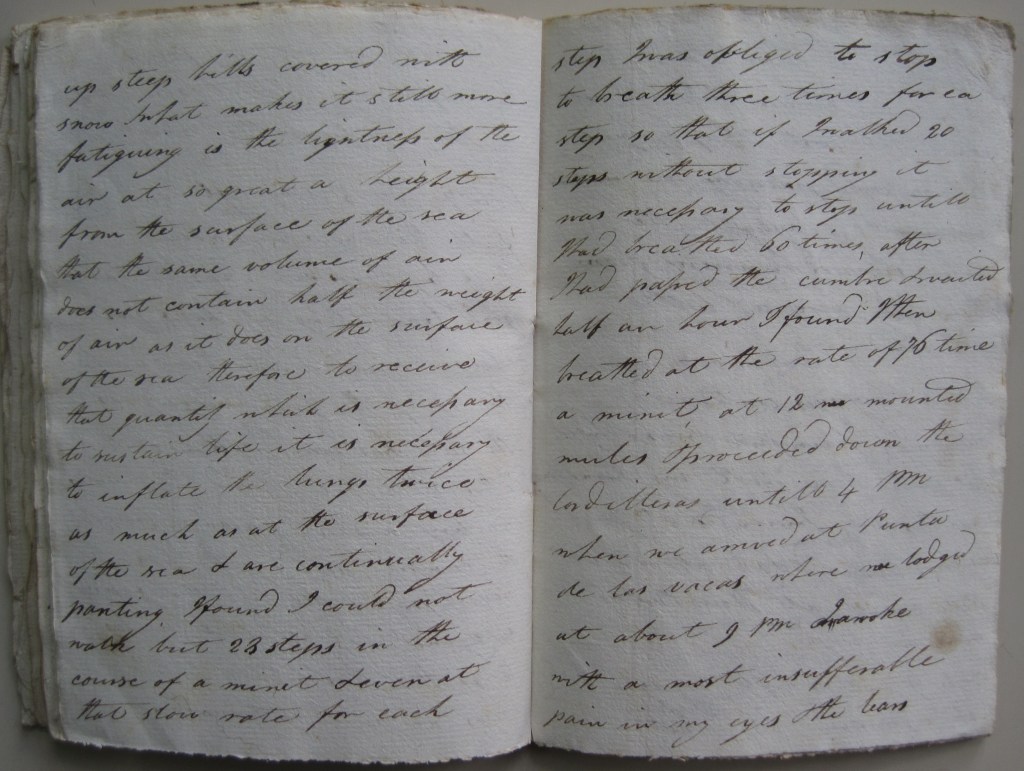 up steep hills covered with
snow What makes it still more
fatiguing is the lightness of the
air at so great a height
from the surface of the sea
that the same volume of air
does not contain half the weight
of air as it does on the surface
of the sea therefore to receive
that quantity which is necessary
to sustain life it is necessary
to inflate the lungs twice
as much as at the surface
of the sea & are continually
panting I found I could not
walk but 23 steps in the
course of a minit & even at
that slow rate for each
step I was obliged to stop
to breath three times for ea
step so that if I walked 20
steps without stopping it
was necessary to stop untill
I had breathed 60 times, after
I had passed the cumbre & waited
half an hour I found I then
breathed at the rate of 76 time
a minit, at 12 mounted
mules & proceeded down the
Cordilleras untill 4 PM
when we arrived at Punta
de las vacas where we lodged
at about 9 PM I awoke
with a most insufferable
pain in my eyes & the tears